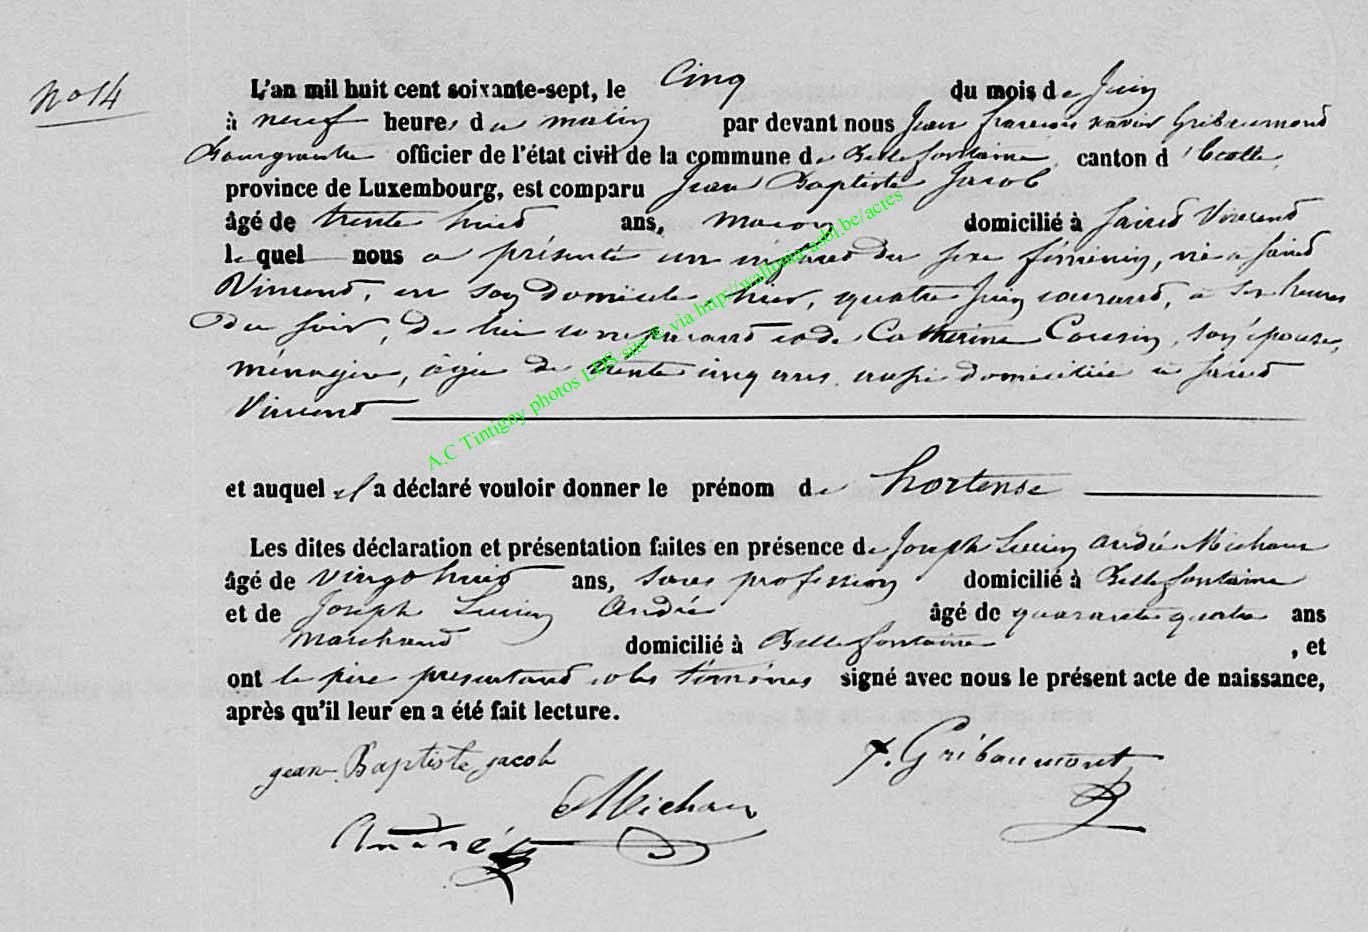 No 14
L'an mil huit cent soixante-sept, le Cinq du mois de Juin
à neuf heures du matin par devant nous Jean françois xavier Gribeumond
Bourgmestre officier de l'état civil de la commune de Bellefontaine canton d'Etalle,
province de Luxembourg, est comparu Jean Baptiste Jacob
âgé de trente huit ans, maçon domicilié à Saint Vincent
lequel nous a présenté un infant du sexe féminin, né à Saint
Vincent, en son domicile hier, quatre Juin courant, à six heures
du soir, de lui comparant et de Catherine Cousin, son épouse,
ménagère, âgée de trente cinq ans, aussi domiciliée à Saint
Vincent
et auquel il a déclaré vouloir donner le prénom de hortense
Les dites déclaration et présentation faites en présence de Joseph André Michaux
âgé de vingt huit ans, sans profession domicilié à Bellefontaine
et de Joseph Lucien André âgé de quarante quatre ans
marchand domicilié à Bellefontaine, et
ont le père présentant et les témoins signé avec nous le présent acte de naissance,
après qu'il leur en a été fait lecture.
jean Baptiste jacob
Gribaumont
Michaux
André
A.C Tintigny photos LDS site via http://wallonia-asbl.be/actes